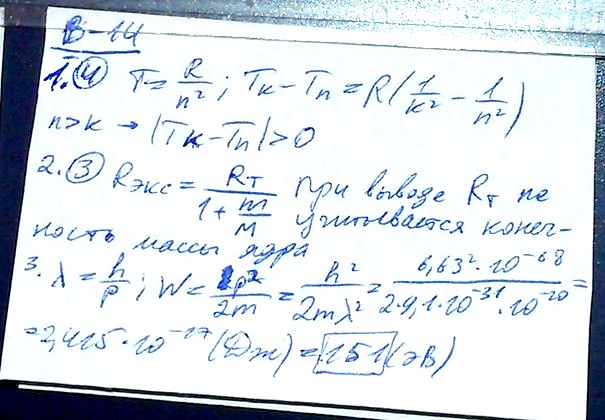 В-14
1. ④ T = R/n²; Tк - Tп = R(1/к² - 1/n²)
п>к → |Tк - Tп| > 0
2. ③ Rэкс = Rт/(1 + m/M) при вывозе Rт не
учитывается конеч-
ность массы ядра
3. λ = h/p; W = p²/2m = h²/2mλ² = 6,63²·10⁻⁶⁸/2·9,1·10⁻³¹·10⁻²⁰ =
= 2,415·10⁻¹⁷ (Дж) = 151 (эВ)